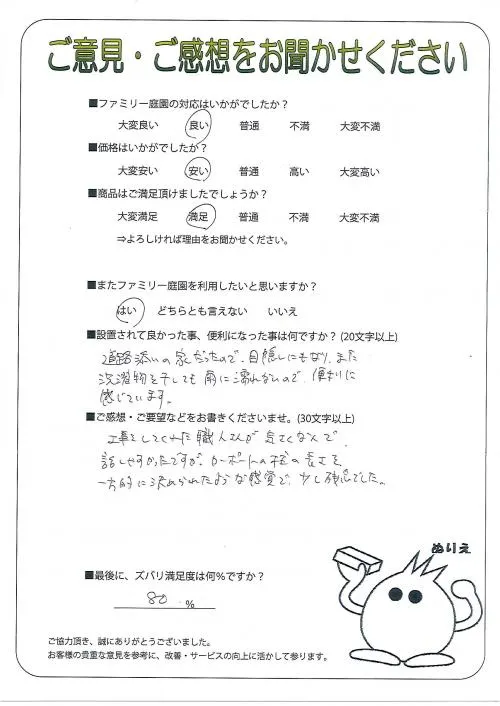 ご意見・ご感想をお聞かせください
■ファミリー庭園の対応はいかがでしたか？
大変良い 良い 普通 不満 大変不満
■価格はいかがでしたか？
大変安い 安い 普通 高い 大変高い
■商品はご満足頂けましたでしょうか？
大変満足 満足 普通 不満 大変不満
⇒よろしければ理由をお聞かせください。
■またファミリー庭園を利用したいと思いますか？
はい どちらとも言えない いいえ
■設置されて良かった事、便利になった事は何ですか？(20文字以上)
道路添いの家だったので、目隠しにもなり、また
洗濯物を干しても雨に濡れないので、便利に
感じています。
■ご感想・ご要望などをお書きくださいませ。(30文字以上)
工事をしてくれた職人さんが気さくな人で、
話しやすかったですが、カーポートの柱の長さを
一方的に決められたような感覚で、少し残念でした。
ぬりえ
■最後に、ズバリ満足度は何%ですか？
80 %
ご協力頂き、誠にありがとうございました。
お客様の貴重な意見を参考に、改善・サービスの向上に活かして参ります。